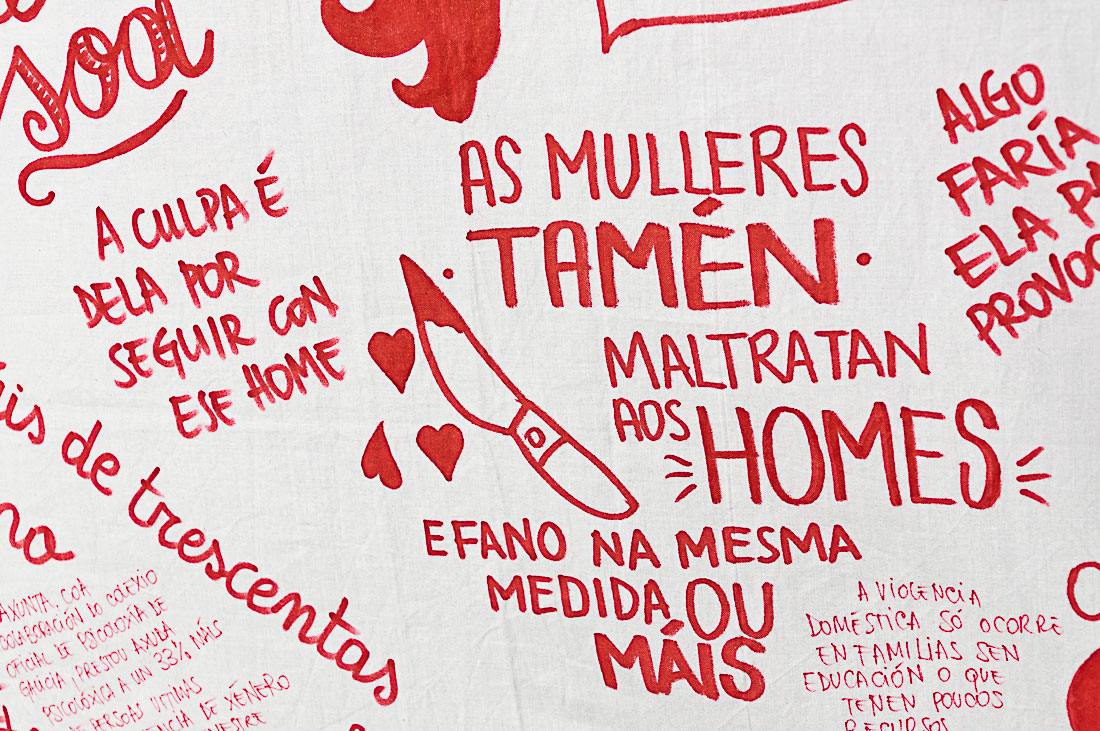 soa
A CULPA É
DELA POR
SEGUIR CON
ESE HOME
AS MULLERES
TAMÉN
MALTRATAN
AOS HOMES
E FANO NA MESMA
MEDIDA OU
MÁIS
ALGO
FARÍA
ELA
de trescentas
AXUNTA, COA
COLABORACIÓN DO COLEXIO
OFICIAL DE PSICOLOXÍA DE
GALICIA, PRESTOU AXUDA
PSICOLÓXICA A UN 33% MÁIS
DE PERSOAS VITIMAS
DE XÉNERO
A VIOLENCIA
DOMÉSTICA SÓ OCORRE
EN FAMILIAS SEN
EDUCACIÓN O QUE
TEÑEN POUCOS
RECURSOS